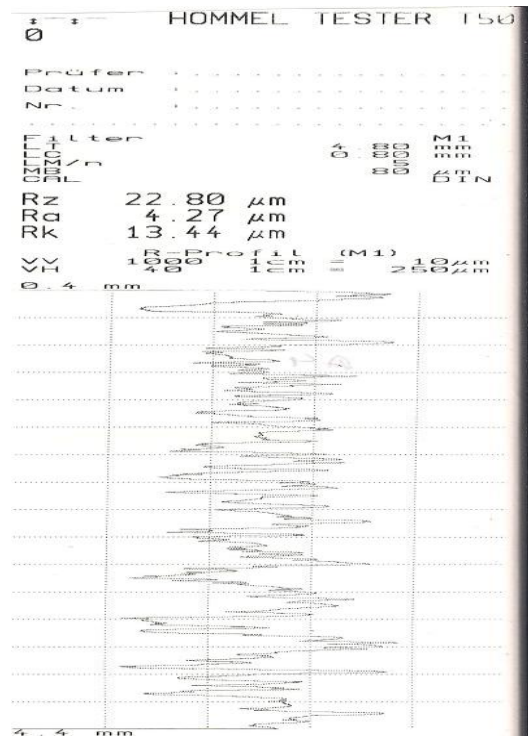 HOMMEL TESTER T50
0
Prüfer
Datum
Nr.
Filter M1
LT 4.80 mm
LC 0.80 mm
LM/n 5
MB 80 µm
CAL DIN
Rz 22.80 µm
Ra 4.27 µm
Rk 13.44 µm
R-Profil (M1)
VV 1000 1cm = 10µm
VH 40 1cm = 250µm
0.4 mm
4.4 mm